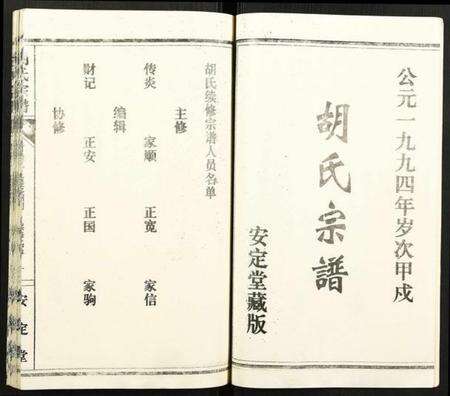 公元一九九四年岁次甲戌
胡氏宗譜
安定堂藏版
胡氏续修宗谱人员名单
主修
传炎 家顺 正宽 家信
编辑
财记 正安 正国 家驹
协修
安定堂